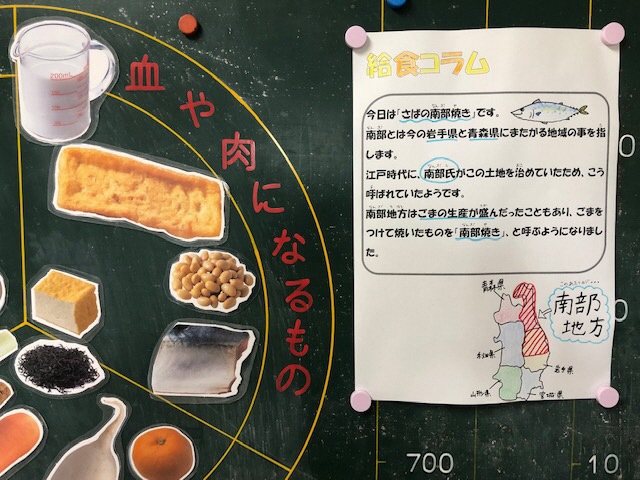 200mL
血や肉になるもの
給食コラム
今日は「さばの南部焼き」です。
南部とは今の岩手県と青森県にまたがる地域の事を指
します。
江戸時代に、南部氏がこの土地を治めていたため、こう
呼ばれていたようです。
南部地方はごまの生産が盛んだったこともあり、ごまを
つけて焼いたものを「南部焼き」、と呼ぶようになりまし
た。
青森県
このあたりが…
南部
地方
秋田県
岩手県
山形県
宮城県
0
0
700
10